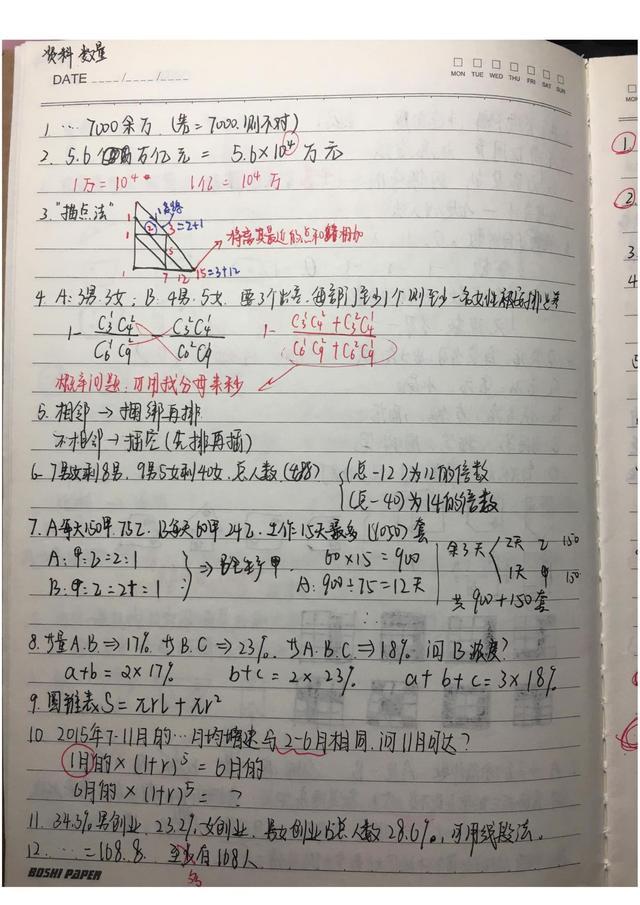 资料 数量
DATE
MON TUE WED THU FRI SAT SUN
1. … 7000余万 (若=7000.1则不对)
2. 5.6万亿元 = 5.6×10⁴ 万元
1万=10⁴ 1亿=10⁴万
3. "描点法"
1
1
1
2
3=2+1
5
7 12 15=3+12
将离其最近的点和相加
4. A:3男.3女; B:4男.5女. 要3个出差.每部门至少1个则至少一名女性被安排出差
1- C₃¹C₄²/C₆¹C₉² - C₃²C₄¹/C₆²C₉¹
1- (C₃¹C₄²+C₃²C₄¹)/(C₆¹C₉²+C₆²C₉¹)
概率问题,可用找分母来秒
5. 相邻→捆绑再排
不相邻→插空(先排再插)
6. 7男5女剩8男. 9男5女剩40女.总人数
(总-12)为12的倍数
(总-40)为14的倍数
7. A每天150甲.75乙. B每天60甲24乙.工作15天最多(1050)套
A:甲:乙=2:1
B:甲:乙=2+:1
⇒B全生产甲.
60×15=900
A:900÷75=12天
余3天
2天 乙 150
1天 甲 150
共900+150套
8. 等量A.B⇒17%. 等B.C⇒23%. 等A.B.C⇒18%. 问B浓度?
a+b=2×17% b+c=2×23%. a+b+c=3×18%
9. 圆锥表S=πrl+πr²
10. 2015年7-11月的…月均增速与2-6月相同.问11月可达?
1月的×(1+r)⁵=6月的
6月的×(1+r)⁵=?
11. 34.3%男创业. 23.2%女创业. 男女创业占总人数28.6%,可用线段法.
12. …=168.8. 有168人
BOSHI PAPER